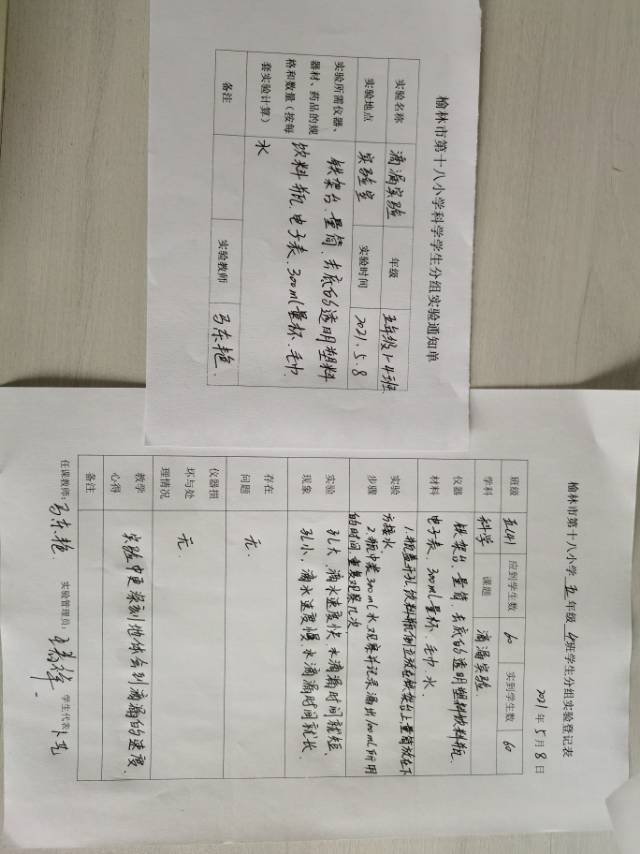 榆林市第十八小学科学学生分组实验通知单
实验名称 滴漏实验 年级 五年级1-4班
实验地点 实验室 实验时间 2021.5.8
实验所需仪器、器材、药品的规格和数量（按每套实验计算） 铁架台、量筒、去底的透明塑料
饮料瓶、电子表、300ml量杯、毛巾、
水
备注 实验教师 马东艳
榆林市第十八小学 五 年级 4 班学生分组实验登记表
2021年5月8日
班级 五(4) 应到学生数 60 实到学生数 60
学科 科学 课题 滴漏实验
仪器材料 铁架台、量筒、去底的透明塑料饮料瓶、
电子表、300ml量杯、毛巾、水.
实验步骤 1.瓶盖开孔,饮料瓶倒立放在铁架台上量筒放在下
方接水
2.瓶中装300ml水,观察并记录漏出100ml所用
的时间,重复观察几次
实验现象 孔大,滴水速度快,水滴漏时间就短.
孔小,滴水速度慢,水滴漏时间就长.
存在问题 无.
仪器损坏与处理情况 无.
教学心得 实验中要控制滴漏的速度.
备注
任课教师: 马东艳 实验管理员: 学生代表: